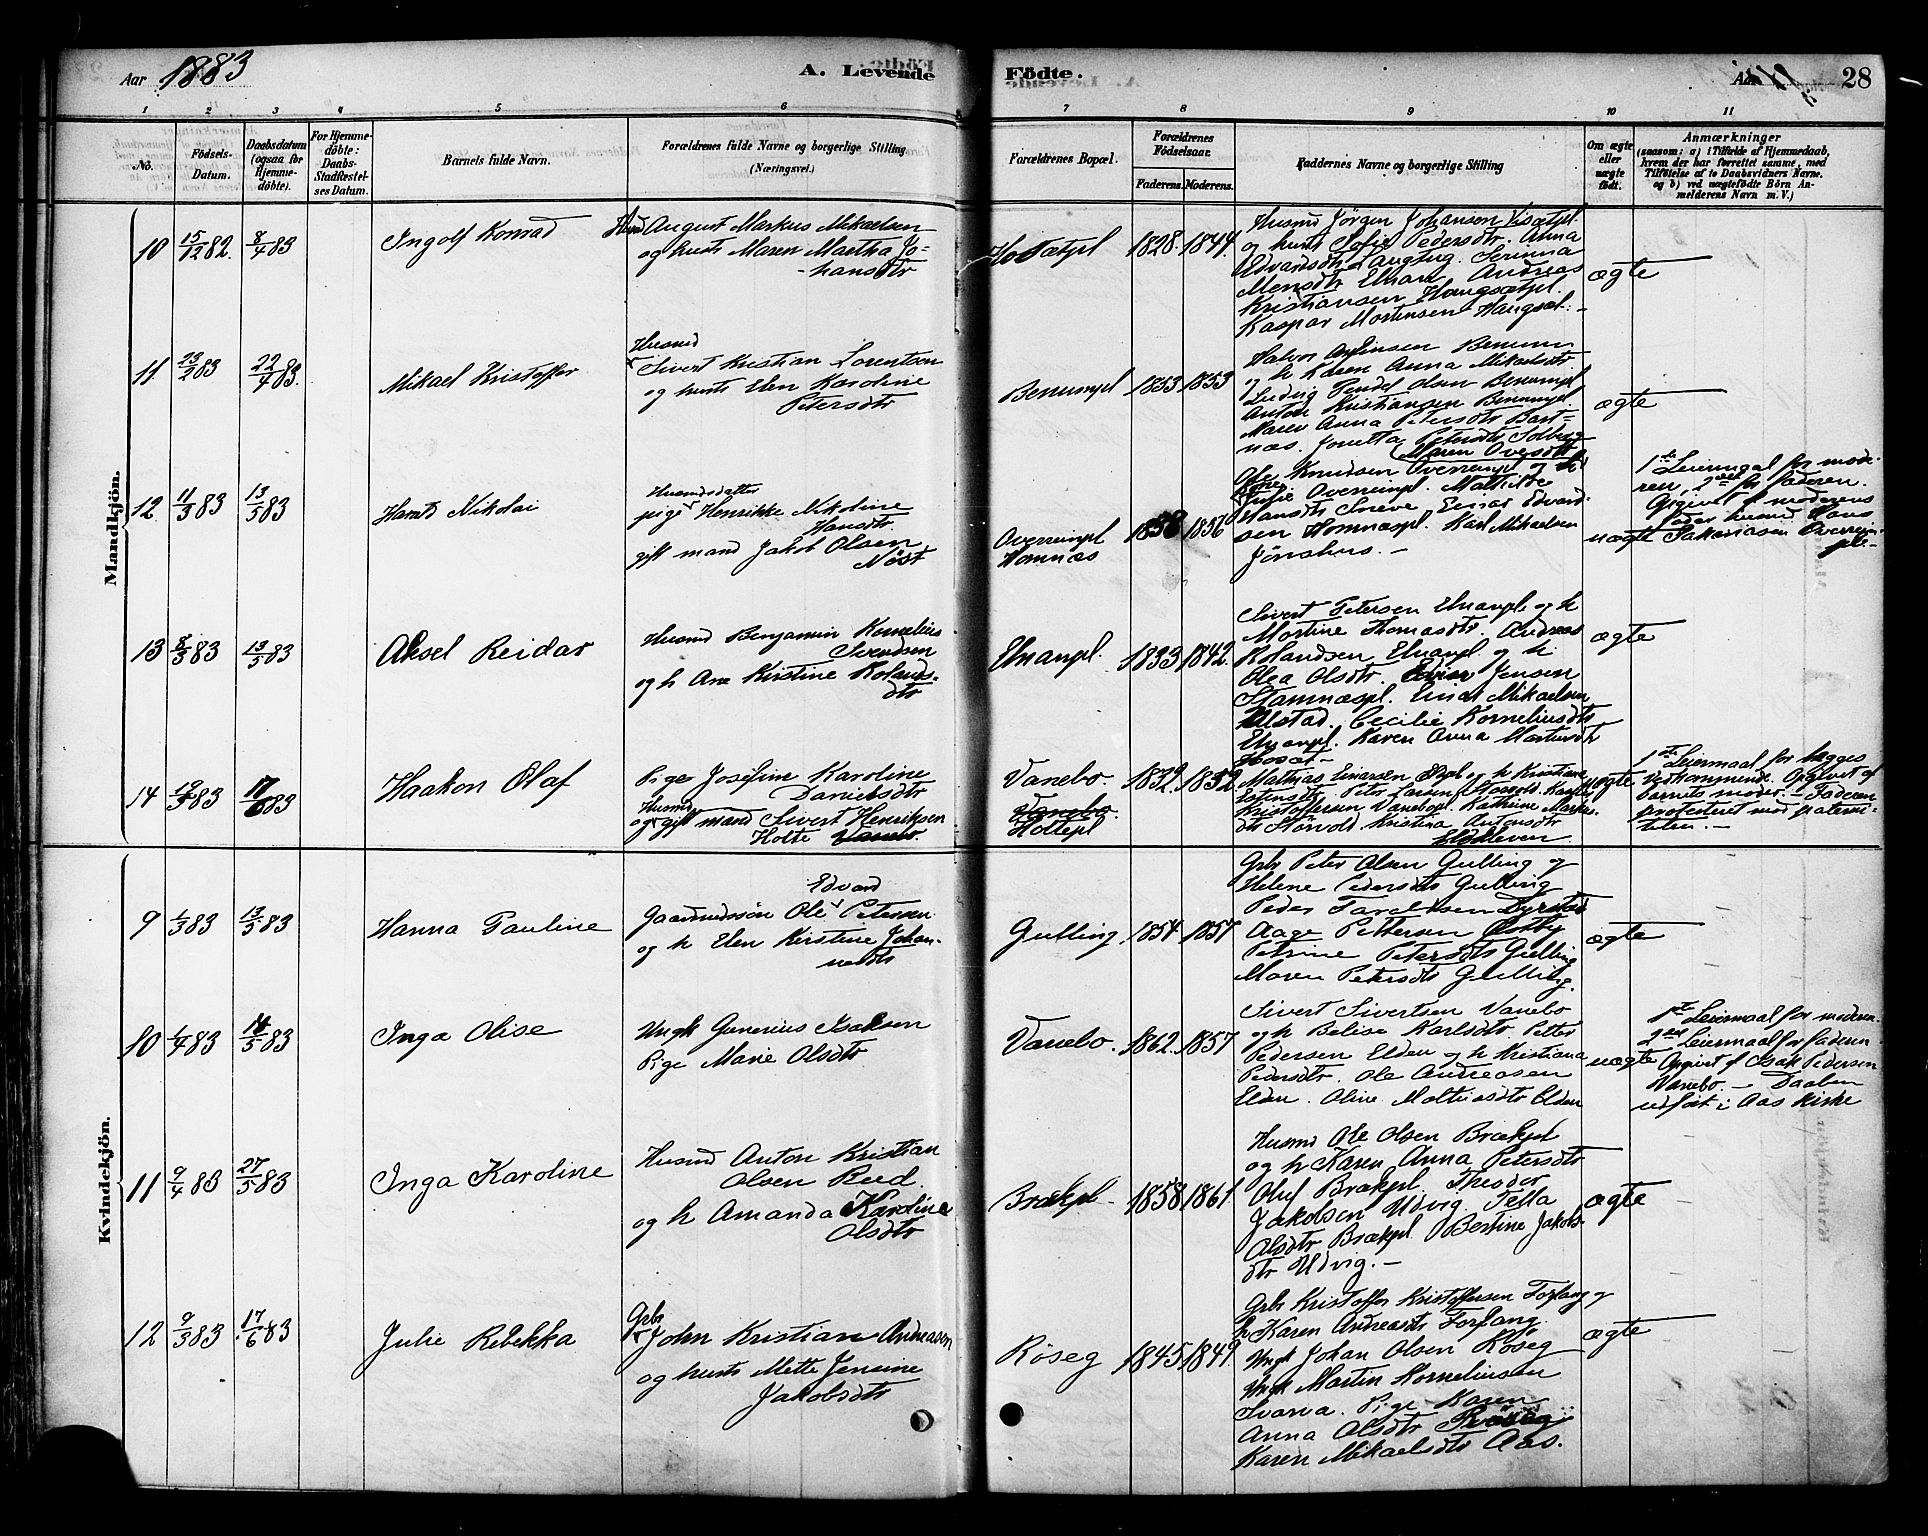 Aar 1883
A. Levende
Födte.
28
1 2 3 4 5 6 7 8 9 10 11
No.
Födsels-Datum.
Daabsdatum (ogsaa for Hjemmedöbte).
For Hjemmedöbte: Daabs-Stadfæstelses Datum.
Barnets fulde Navn.
Forældrenes fulde Navne og borgerlige Stilling (Næringsvei.)
Forældrenes Bopæl.
Forældrenes Födselsaar.
Faderens. Moderens.
Faddernes Navne og borgerlige Stilling
Om ægte eller uægte födt.
Anmærkninger
(saasom: a) i Tilfælde af Hjemmedaab,
hvem der har forrettet samme, med
Tilföielse af to Daabsvidners Navne.
og b) ved uægtefödte Börn An-
melderens Navn m. V.)
Mandkjön.
10 15/12 82. 8/4 83
Ingolf Konrad
August Markus Mikaelsen
og hust Maren Martha Jo-
hansdtr
1828. 1844.
Husmd Jörgen Johansen
og hust Sofie Pedersdtr. Anna
Kristiansen
Kaspar Mortensen
ægte
11 23/2 83 22/4 83.
Mikael Kristoffer
Husmd
Sivert Kristian Lorentsen
og hust Elen Karoline
Petersdtr
Benumpl 1853 1853
og h Karen Anna Mikaelsdtr
Ludvig Olsen Benumpl
Anton Kristiansen Benumpl.
Maren Anna Petersdtr Bart-
næs. Petersdtr
ægte
12. 11/3 83 13/5 83
Nikolai
Husmdsdatter
pige Henrikke Nikoline
Hansdtr
gift mand Jakob Olsen
Nöst
Overreinpl
Homnæs
1858 1856
Maren Ovesdtr
Ole Knudsen Overreinpl og
Overreinpl. Mathilde
Hansdtr Einar Edvard-
sen Homnæspl. Karl Mikaelsen
Jönshus. -
uægte
1ste Leiermaal for mode-
ren, 2det for faderen.
Opgivet af moderens
fader husmd Hans
Sakariasen Overrein-
pl. -
13 8/3 83 13/5 83
Aksel Reidar
Husmd Benjamin Kornelius
Svendsen
og h Ane Kirstine Rolands-
dtr
Elnanpl. 1833 1842.
Sivert Petersen Elnanpl. og h
Martine Thomasdtr. Andreas
Rolandsen Elnanpl og h
Olea Olsdtr. Jensen
Hamnæspl. Einar Mikaelsen
Alstad. Cecilie Korneliusdtr
Elnanpl. Karen Anna
ægte
14 83 17/6 83
Haakon Olaf
Pige Josefine Karoline
Danielsdtr
Husmd
og gift mand Sivert Henriksen
Holte
Vanebo. 1832. 1852.
Vanebo
Holtepl
Mathias Einarsen og h Kristiane
Estensdtr. Peter Larsen
Kristoffersen Vanebopl. Kathrine
Kristina Antonsdtr
uægte
1ste Leiermaal for begges
vedkommende. Opgivet af
barnets moder. - Faderen
protesteret mod paterni-
teten. -
Kvindekjön.
9 1/3 83 13/5 83
Hanna Pauline
Edvard
Gaardmdssön Ole Petersen
og h Elen Kirstine Johan-
nesdtr
Gulling. 1854. 1857
Grbr Peter Olsen Gulling og
Helene Pedersdtr Gulling
Peder
Aage Pettersen
Petrine Petersdtr Gulling
Maren Petersdtr Gulling.
ægte
10 1/4 83 14/5 83
Inga Olise
Ungk Gunerius Isaksen
Pige Marie Olsdtr
Vanebo. 1862. 1857
Sivert Sivertsen Vanebo
og h Belise Karlsdtr. Petter
Pedersen Elden og h Kristiana
Pedersdtr. Ole Andreasen
Elden. Oline Mathiasdtr Elden
uægte
1ste Leiermaal for moderen.
2det Leiermaal for faderen.
Opgivet af Isak Pedersen
Vanebo. - Daaben
udfört i Aas Kirke
11 9/4 83 27/5 83
Inga Karoline
Husmd Anton Kristian
Olsen Reed.
og h Amanda Karoline
Olsdtr
Brækpl 1858 1861.
Husmd Ole Olsen Brækpl
og h Karen Anna Petersdtr
Oluf Brækpl. Theodor
Jakobsen Udvig.
Olsdtr Brækpl. Bertine Jakobs-
dtr Udvig. -
ægte
12 9/3 83 17/6 83
Julie Rebekka
Grbr
John Kristian Andreasen
og hust Mette Jensine
Jakobsdtr
Röseg 1845. 1849.
Grbr Kristoffer Kristoffersen Forfang og
h Karen Andreasdtr Forfang.
Ungk Johan Olsen Röseg
Ungk Martin Korneliussen
Svarva. Pige Karen
Anna Olsdtr Röseg
Karen Mikaelsdtr Aas.
ægte